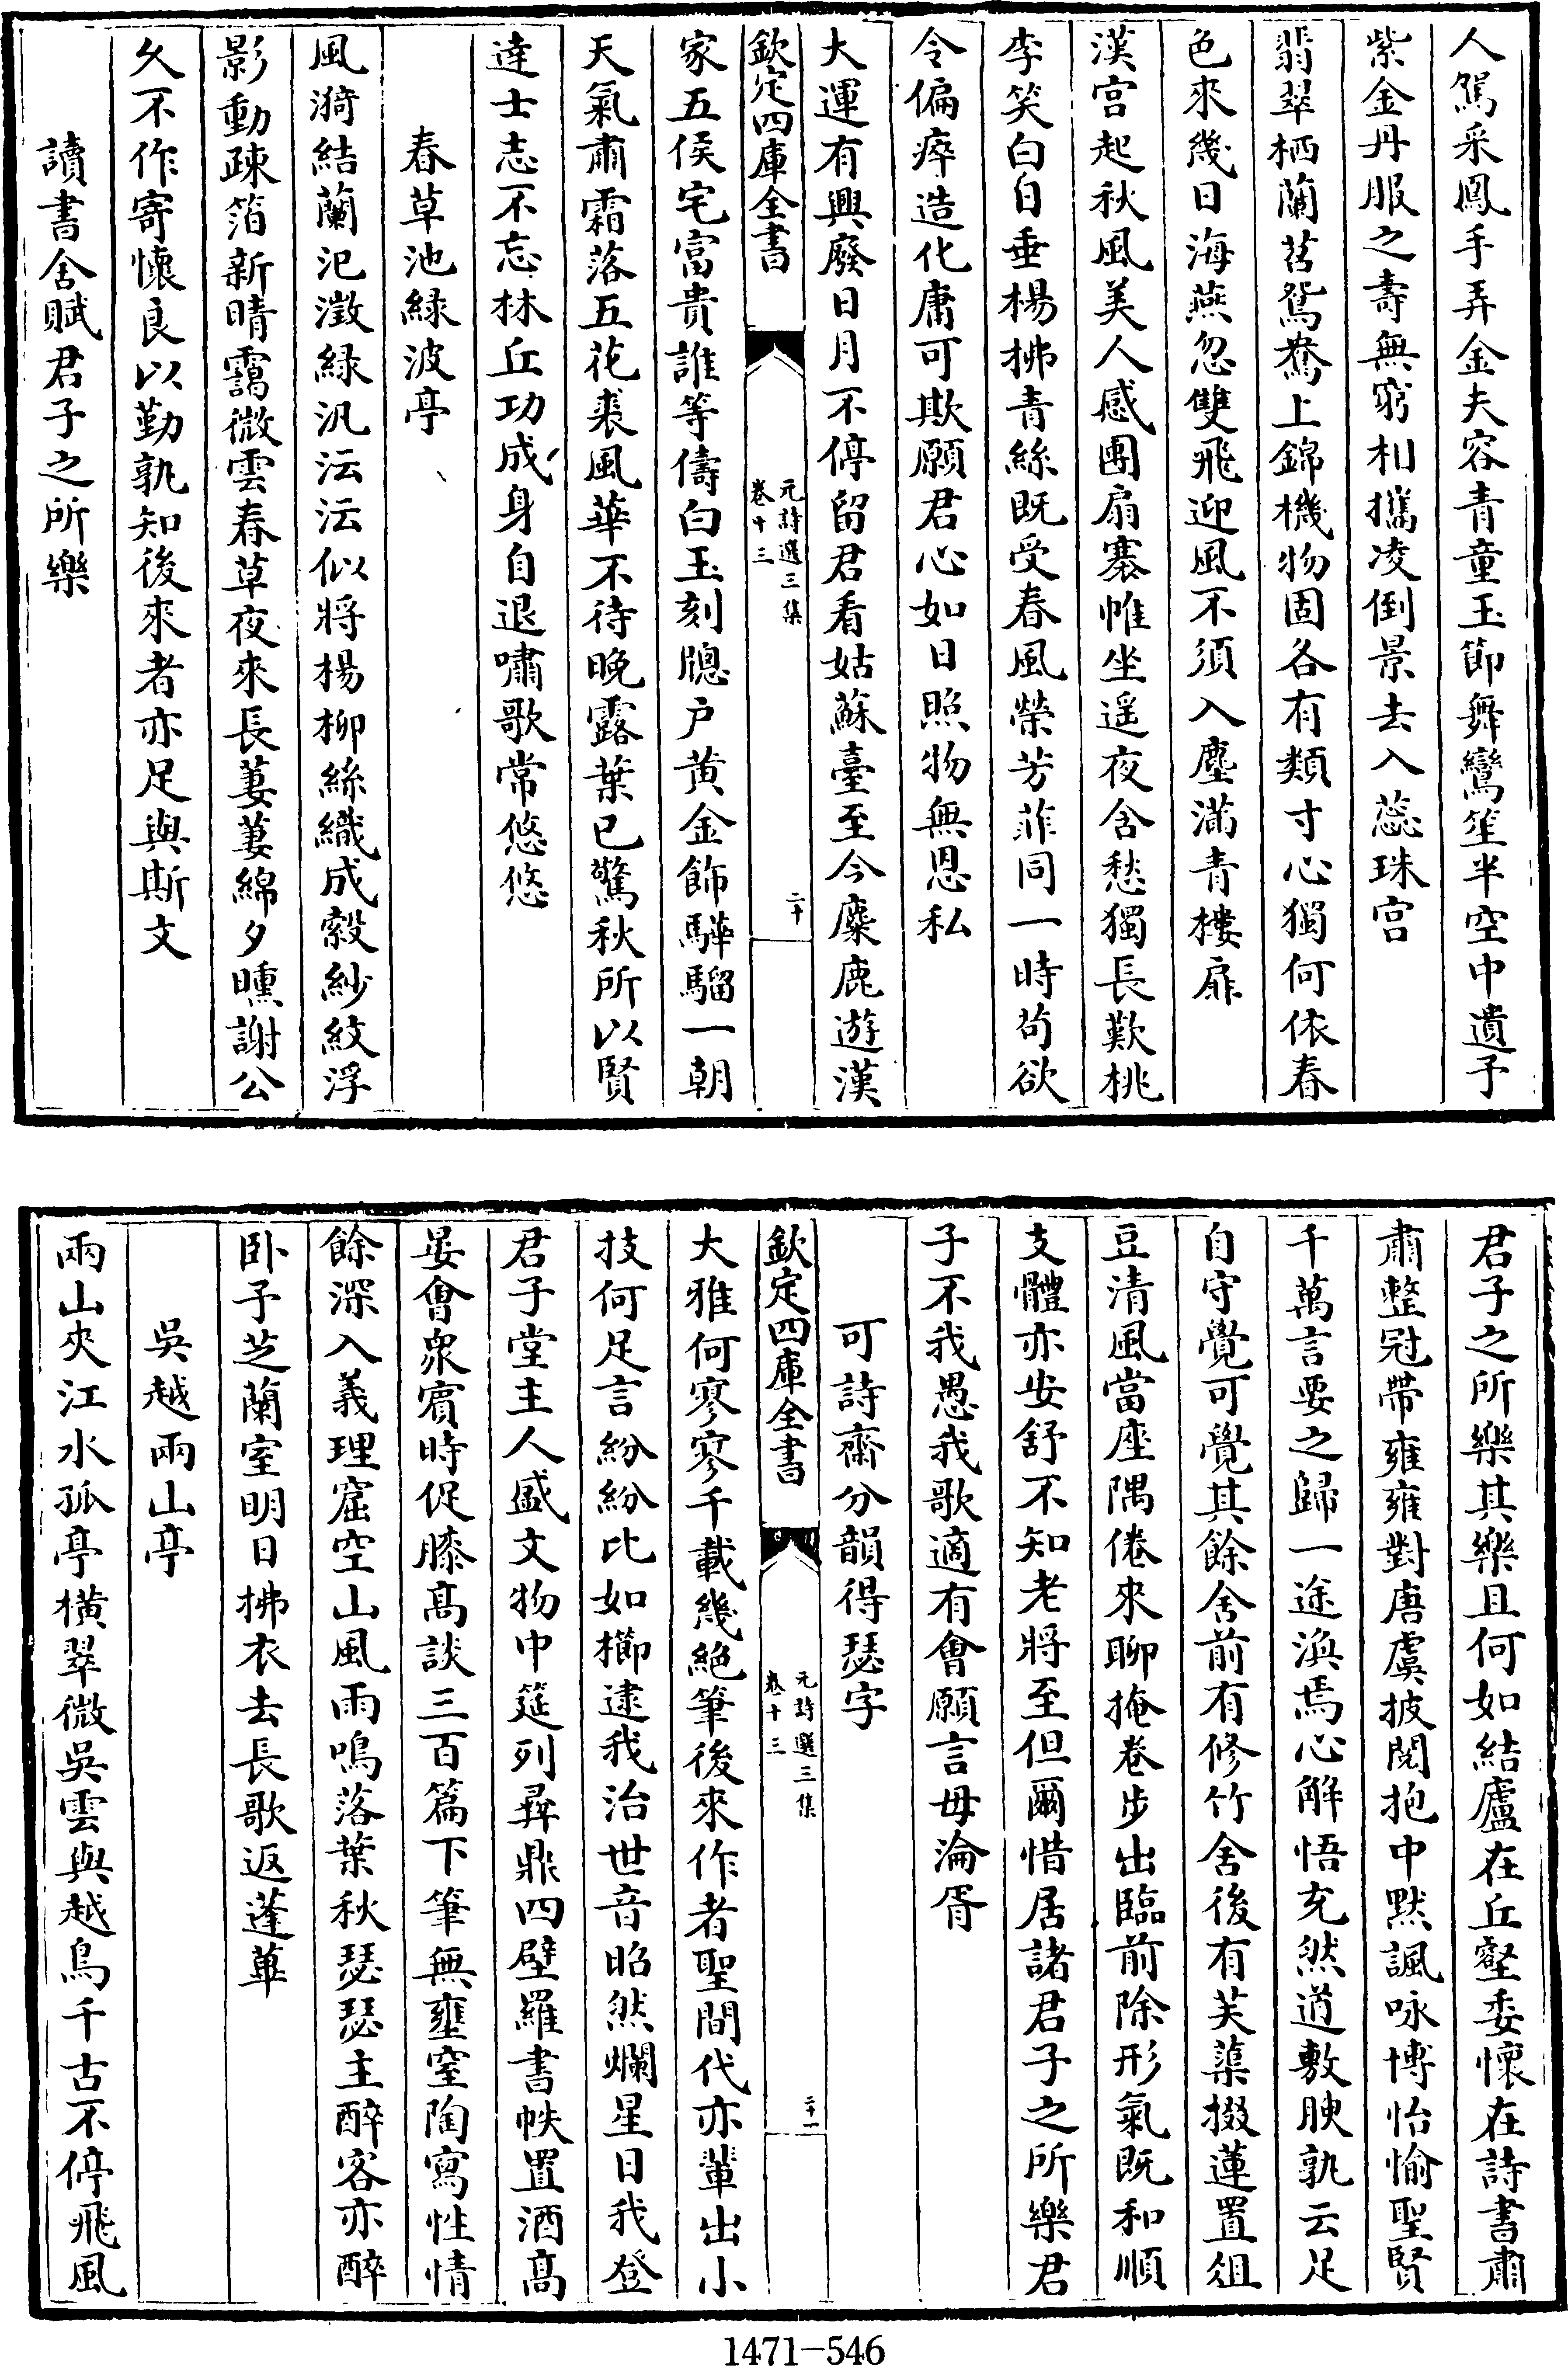 人駕采鳳手弄金夫容青童玉節舞鸞笙半空中遺予
紫金丹服之壽無窮相攜凌倒景去入蕊珠宫
翡翠栖蘭苕鴛鴦上錦機物固各有類寸心獨何依春
色來幾日海燕忽雙飛迎風不須入塵滿青樓扉
漢宫起秋風美人感團扇褰帷坐遥夜含愁獨長歎桃
李笑白日垂楊拂青絲既受春風榮芳菲同一時苟欲
令偏瘁造化庸可欺願君心如日照物無恩私
大運有興廢日月不停留君看姑蘇臺至今麋鹿遊漢
欽定四庫全書
元詩選三集
卷十三
二十
家五侯宅富貴誰等儔白玉刻牕户黄金飾驊騮一朝
天氣肅霜落五花裘風華不待晚露葉已驚秋所以賢
達士志不忘林丘功成身自退嘯歌常悠悠
春草池緑波亭
風漪結蘭汜澂緑汎沄沄似將楊柳絲織成縠紗紋浮
影動疎箔新晴靄微雲春草夜來長萋萋綿夕曛謝公
久不作寄懷良以勤孰知後來者亦足與斯文
讀書舍賦君子之所樂
君子之所樂其樂且何如結廬在丘壑委懷在詩書肅
肅整冠帶雍雍對唐虞披閱抱中默諷咏博怡愉聖賢
千萬言要之歸一途渙焉心解悟充然道敷腴孰云足
自守覺可覺其餘舍前有修竹舍後有芙蕖掇蓮置俎
豆清風當座隅倦來聊掩卷步出臨前除形氣既和順
支體亦安舒不知老將至但爾惜居諸君子之所樂君
子不我愚我歌適有會願言毋淪胥
可詩齋分韻得瑟字
欽定四庫全書
元詩選三集
卷十三
二十一
大雅何寥寥千載幾絶筆後來作者聖間代亦輩出小
技何足言紛紛比如櫛逮我治世音昭然爛星日我登
君子堂主人盛文物中筵列彛鼎四壁羅書帙置酒高
晏會衆賓時促膝高談三百篇下筆無壅窒陶寫性情
餘深入義理窟空山風雨鳴落葉秋瑟瑟主醉客亦醉
卧予芝蘭室明日拂衣去長歌返蓬蓽
吳越兩山亭
兩山夾江水孤亭横翠微吳雲與越鳥千古不停飛風
1471-546